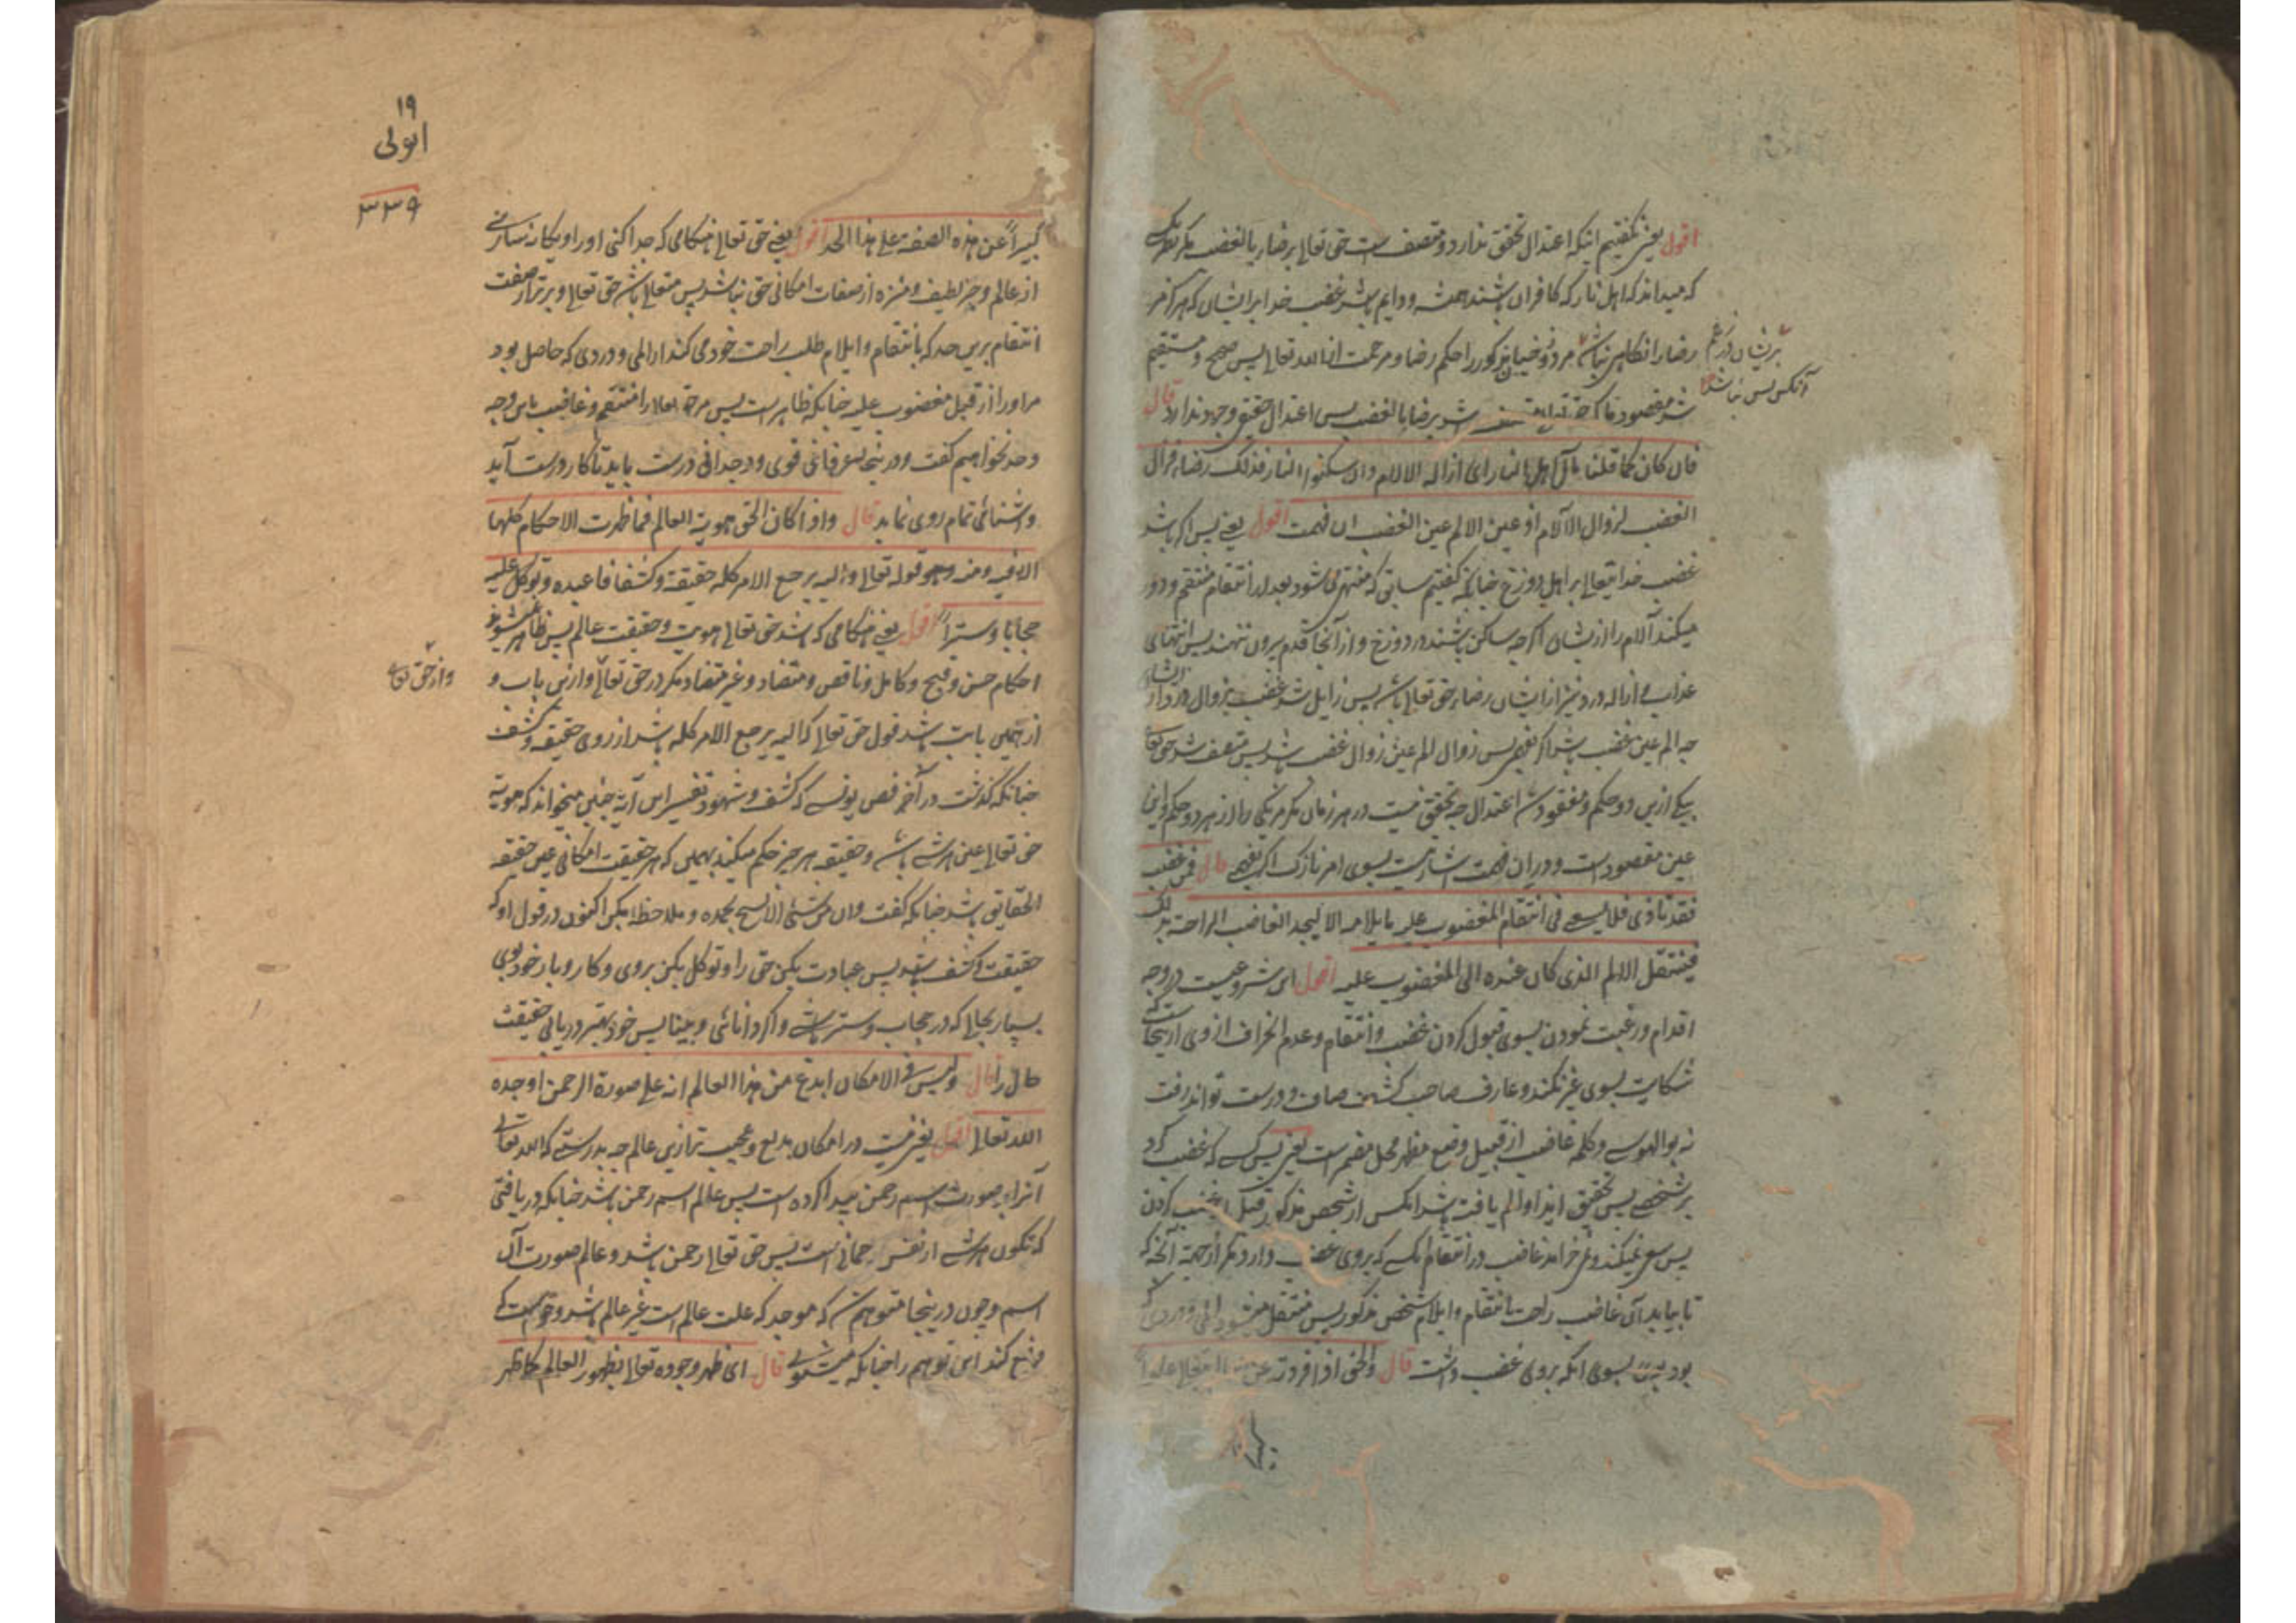 اقول یعنی گفتیم اینکه اعتدال تحقق ندارد و متصف است حق تعالی برضا یا بالغضب مگر
که میداند که اهل نار که کافران باشند همیشه و دایم باشد غضب خدا بر ایشان که هرگز مر
رضا را انگاهی نباشد مذکور را حکم رضا و مرحمت از الله تعالی پس صحیح و مستقیم
شد مقصود ما که شد برضا یا بالغضب پس اعتدال حقیقی وجود ندارد قال
بر ایشان در زعم
آنکس پس نباشد
فان کان کما قلنا مآل اهل النار الی ازالة الآلام وان سکنوا النار فذلک رضا فزال
الغضب لزوال الآلام اذ عین الالم عین الغضب ان فهمت اقول یعنی پس اگر باشد
غضب خدایتعالی بر اهل دوزخ چنانکه گفتیم سابق که منتهی شود بعد از انتقام منتقم و دور
میکند آلام را از ایشان اگرچه ساکن باشند در دوزخ و از آنجا قدم بیرون ننهند پس انتهای
عذاب و ازاله درد نیز از ایشان رضای حق تعالی باشد پس زایل شد غضب بزوال درد از ایشان
چه الم عین غضب باشد اگر بفهمی پس زوال الم عین زوال غضب باشد پس متصف شد حق تعا
بیکی ازین دو حکم و مفقود شد اعتدال چه تحقق نیست در هر زمان مگر مر یکی را از هر دو حکم و این
عین مقصود است و در ان فهمت اشارتیست بسوی امر نازک اگر بفهمی قال فمن غضب
فقد تأذی فلا یسعی فی انتقام المغضوب علیه بایلامه الا لیجد الغاضب الراحة بذلک
فینتقل الالم الذی کان عنده الی المغضوب علیه اقول این شروعیست در وجه
اقدام و رغبت نمودن بسوی قبول کردن غضب و انتقام و عدم انحراف از وی از اینجاست که
شکایت بسوی غیر نکند و عارف صاحب کشف صاف و درست تواند رفت
نه بوالهوسی و کلمه غاضب از قبیل وضع مظهر محل مضمر است یعنی پس کسی که غضب کرد
بر شخصی پس بتحقیق ایذا و الم یافته باشد آنکس از شخص مذکور قبل غضب کردن
پس سعی نمیکند و نمی خواهد غاضب در انتقام آنکس که بروی غضب دارد مگر از جهت آنکه
تا بیابد آن غاضب راحت بانتقام و ایلام شخص مذکور پس منتقل میشود المی و دردی که
بود بسوی آنکه بروی غضب داشت قال والحق اذا افردته عن العالم یتعالی علوا
۱۹
ایوبی
۳۳۹
کبیرا عن هذه الصفة علی هذا الحد اقول یعنی حق تعالی هنگامی که جدا کنی او را و یگانه سازی
از عالم و جز لطیف و منزه از صفات امکانی حق نباشد پس متعالی باشد حق تعالی و برتر از صفت
انتقام برین حد که بانتقام و ایلام طلب راحت خود می کند از المی و دردی که حاصل بود
مر او را از قبل مغضوب علیه چنانکه ظاهر است پس مر حق تعالی را منتقم و غاضب باین وجه
و حد نخواهیم گفت و در اینجا عرفانی قوی و وجدانی درست باید تا کار درست آید
و آشنائی تمام روی نماید قال واذا کان الحق هویة العالم فما ظهرت الاحکام کلها
الا فیه ومنه وهو قوله تعالی والیه یرجع الامر کله حقیقة وکشفا فاعبده وتوکل علیه
حجابا وسترا اقول یعنی هنگامی که باشد حق تعالی هویت و حقیقت عالم پس ظاهر نمیشود
احکام حسن و قبیح و کامل و ناقص و متضاد و غیر متضاد مگر در حق تعالی و ازین باب و
و از حق تعالی
از همین بابت باشد قول حق تعالی که الیه یرجع الامر کله باشد از روی حقیقة و کشف
چنانکه گذشت در آخر فص یونسی که کشف و شهود تفسیر این آیه چنین میخواند که هویة
حق تعالی عین هر شی باشد و حقیقة هر چیز حکم میکند بهمین که هر حقیقت امکانی عین حقیقة
الحقایق باشد چنانکه گفت وان من شئ الا یسبح بحمده و ملاحظه بکن اکنون در قول او که
حقیقت و کشف باشد پس عبادت بکن حق را و توکل بکن بروی و کار و بار خود بوی
بسپار بجا که در حجاب و ستر باشی و اگر دانائی و بینا پس خود بهتر دریابی حقیقت
حال را قال ولیس فی الامکان ابدع من هذا العالم انه علی صورة الرحمن اوجده
الله تعالی اقول یعنی نیست در امکان بدیع و عجیب تر ازین عالم چه بدرستی که الله تعالی
آنرا بر صورت اسم رحمن پیدا کرده است پس عالم اسم رحمن باشد چنانکه دریافتی
که تکون هر شی از نفس رحمانی است پس حق تعالی رحمن باشد و عالم صورت آن
اسم و چون در اینجا متوهم شد که موجد که علت عالم است غیر عالم باشد و خواست که
دفع کند این توهم را چنانکه میشنوی قال ای ظهر وجوده تعالی بظهور العالم کما ظهر